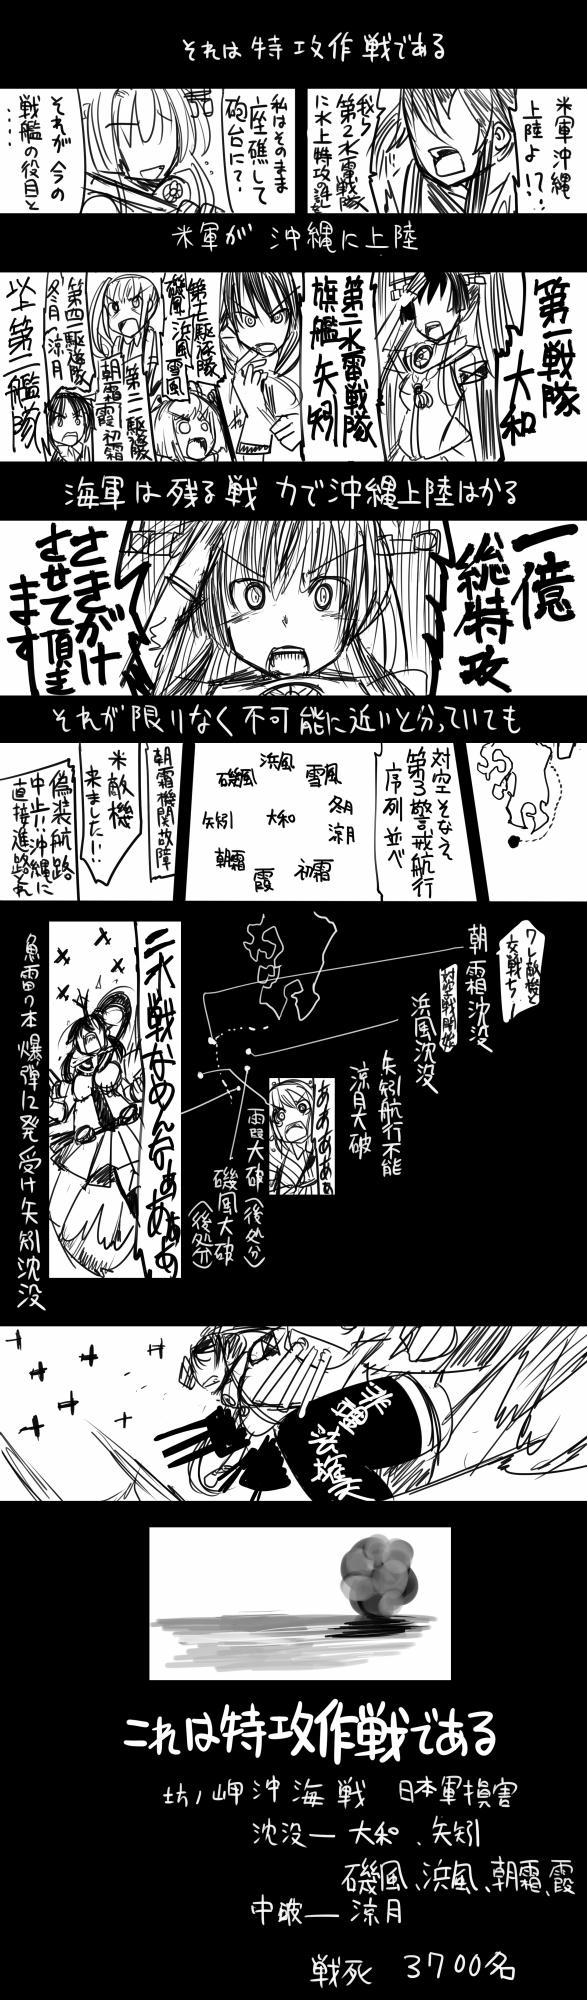 それは特攻作戦である
米軍沖縄
上陸よ!?
我ら
第2水雷戦隊
に水上特攻の誘を
私はそのまま
座礁して
砲台に?
それが今の
戦艦の役目と
・・・・
米軍が沖縄に上陸
第一戦隊
大和
第二水雷戦隊
旗艦矢矧
第十七駆逐隊
磯風浜風雪風
第二一駆逐隊
朝霜霞初霜
第四一駆逐隊
冬月涼月
以上第二艦隊
海軍は残る戦力で沖縄上陸はかる
一億
総特攻
さきがけ
させて頂き
ます
それが限りなく不可能に近いと分っていても
対空そなえ
第3警戒航行
序列並べ
浜風
磯風
雪風
冬月
涼月
矢矧
大和
朝霜
霞
初霜
朝霜機関故障
米敵機
来ました!!
偽装航路
中止!!沖縄に
直接進路とれ
ワレ敵機と
交戦ち!
朝霜沈没
対空戦開始
浜風沈没
矢矧航行不能
涼月大破
ああああああ
霞大破(後処分)
磯風大破
(後処分)
二水戦なめんなぁぁぁぁ
魚雷7本爆弾12発受け矢矧沈没
これは特攻作戦である
坊ノ岬沖海戦 日本軍損害
沈没ー大和、矢矧
磯風、浜風、朝霜、霞
中破ー涼月
戦死 3700名